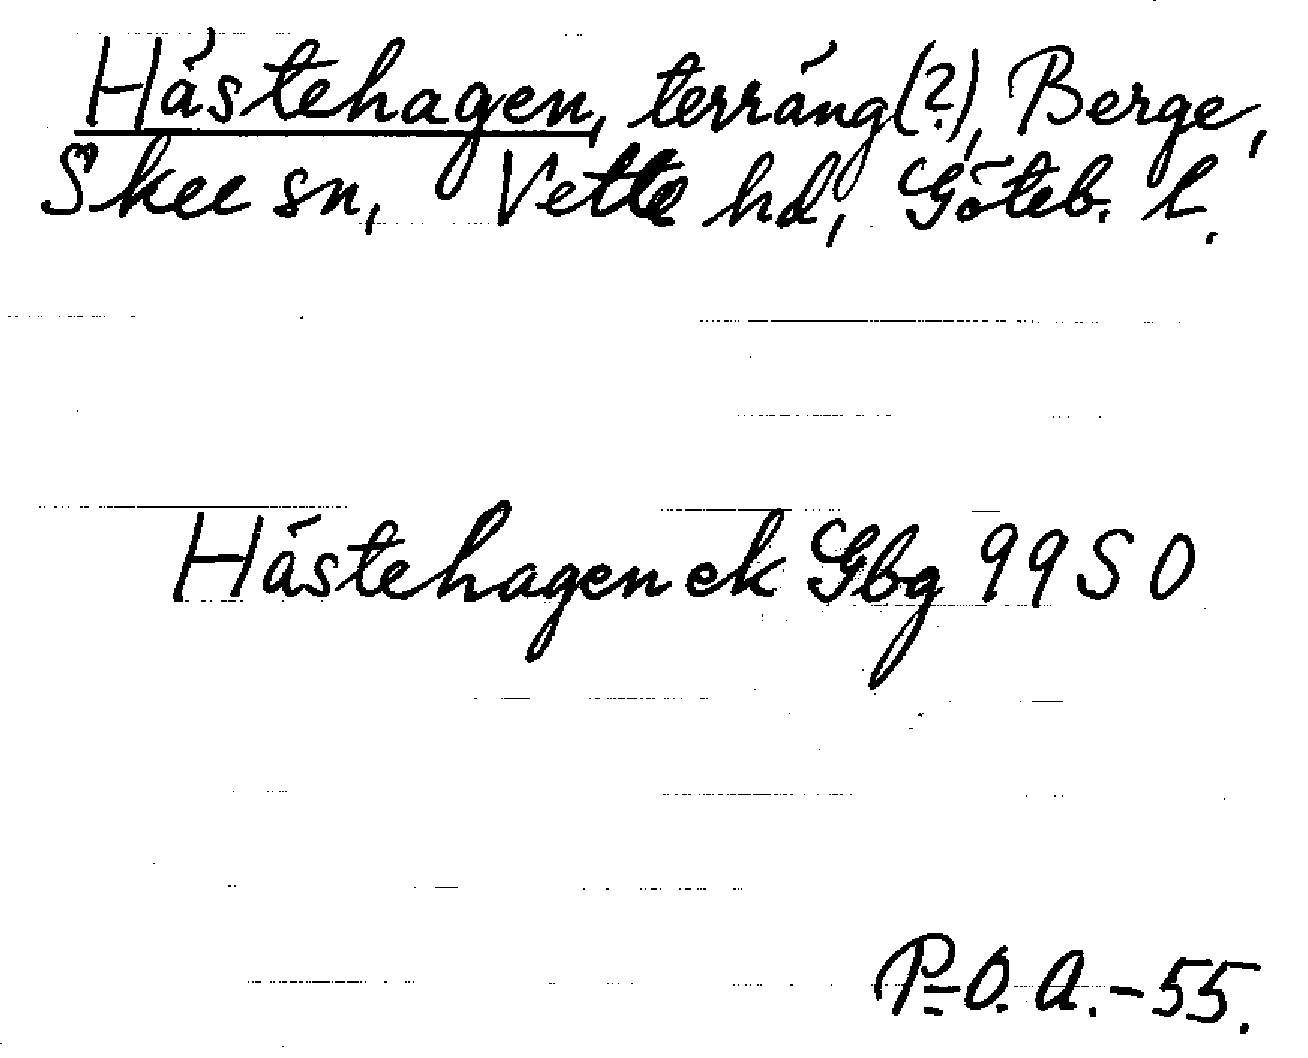 Hästehagen, terräng(?), Berge,
Skee sn, Vette hd, Göteb. l.
Hästehagen ek Gbg 99 S O
P-O. A. - 55.